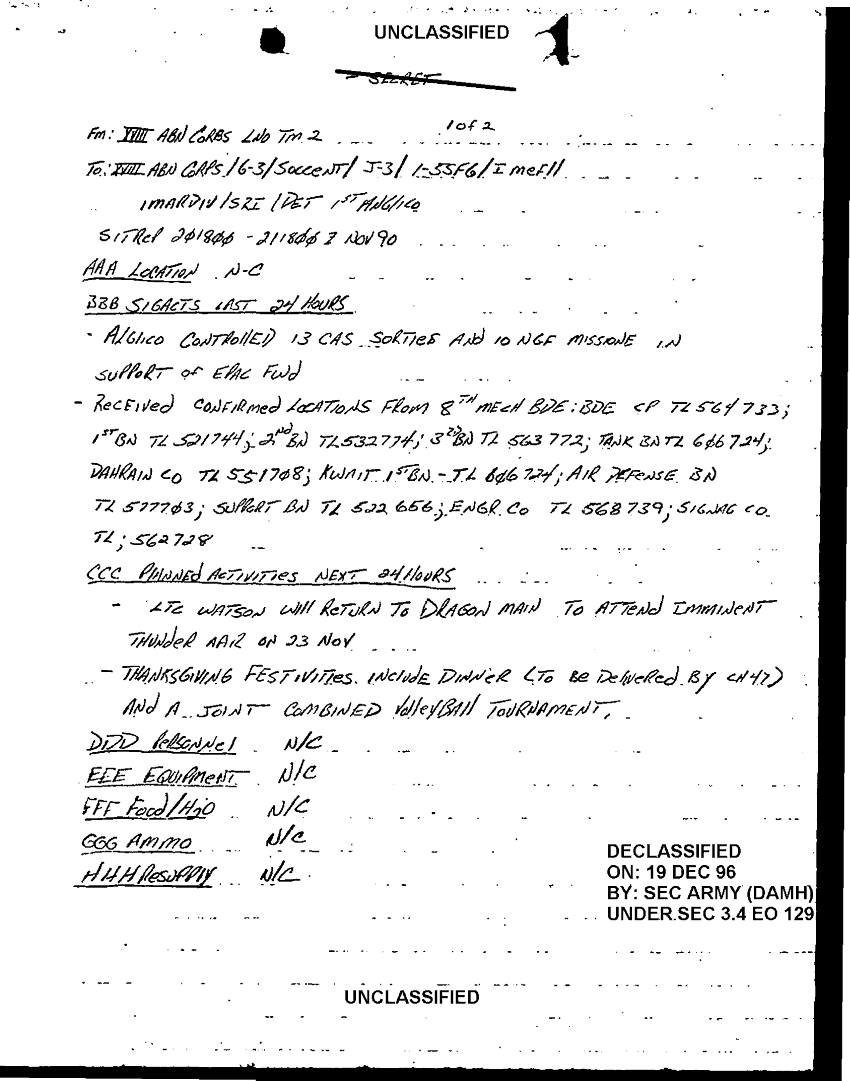 UNCLASSIFIED
SECRET
1 of 2
Fm: XVIII ABN CORPS LNO TM 2
To: XVIII ABN CORPS/G-3/SOCCENT/J-3/1-5SFG/I MEF//
1MARDIV/SRI/DET 1ST ANGLICO
SITREP 201800 - 211800 Z NOV 90
AAA LOCATION N-C
BBB SIGACTS LAST 24 HOURS
- ANGLICO CONTROLLED 13 CAS SORTIES AND 10 NGF MISSIONE IN
SUPPORT OF EPAC FWD
- RECEIVED CONFIRMED LOCATIONS FROM 8TH MECH BDE: BDE CP TL 564 733;
1ST BN TL 521744; 2ND BN TL532774; 3RD BN TL 563 772; TANK BN TL 606 724;
DAHRAIN CO TL 551708; KWAIT 1ST BN - TL 606 724; AIR DEFENSE BN
TL 577703; SUPPORT BN TL 522 656; ENGR CO TL 568 739; SIGNAL CO
TL; 562728
CCC PLANNED ACTIVITIES NEXT 24 HOURS
- LTC WATSON WILL RETURN TO DRAGON MAIN TO ATTEND IMMINENT
THUNDER AAR ON 23 NOV
- THANKSGIVING FESTIVITIES INCLUDE DINNER (TO BE DELIVERED BY CH47)
AND A JOINT COMBINED VOLLEYBALL TOURNAMENT.
DDD PERSONNEL N/C
EEE EQUIPMENT N/C
FFF Food/H2O N/C
GGG AMMO N/C
HHH RESUPPLY N/C
DECLASSIFIED
ON: 19 DEC 96
BY: SEC ARMY (DAMH)
UNDER SEC 3.4 EO 129
UNCLASSIFIED